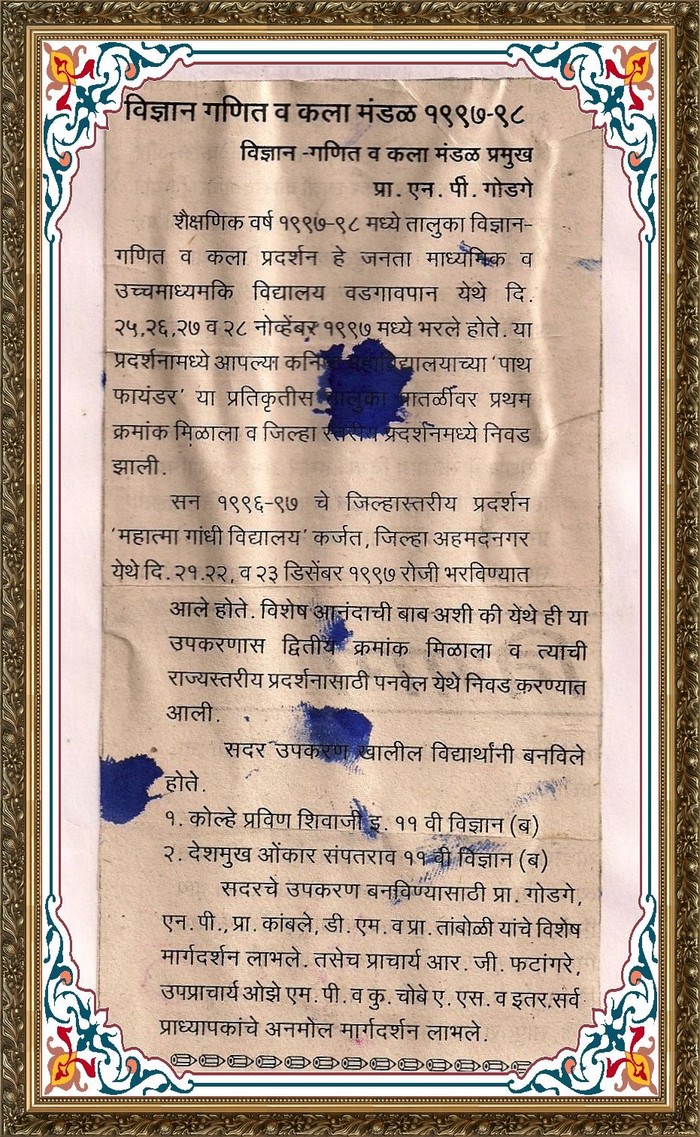 विज्ञान गणित व कला मंडळ १९९७-९८
विज्ञान -गणित व कला मंडळ प्रमुख
प्रा. एन. पी. गोडगे
शैक्षणिक वर्ष १९९७-९८ मध्ये तालुका विज्ञान-
गणित व कला प्रदर्शन हे जनता माध्यमिक व
उच्चमाध्यमकि विद्यालय वडगावपान येथे दि.
२५,२६,२७ व २८ नोव्हेंबर १९९७ मध्ये भरले होते. या
प्रदर्शनामध्ये आपल्या कनिष्ठ महाविद्यालयाच्या 'पाथ
फायंडर' या प्रतिकृतीस तालुका पातळींवर प्रथम
क्रमांक मिळाला व जिल्हा स्तरीय प्रदर्शनमध्ये निवड
झाली.
सन १९९६-९७ चे जिल्हास्तरीय प्रदर्शन
'महात्मा गांधी विद्यालय' कर्जत, जिल्हा अहमदनगर
येथे दि. २१.२२, व २३ डिसेंबर १९९७ रोजी भरविण्यात
आले होते. विशेष आनंदाची बाब अशी की येथे ही या
उपकरणास द्वितीय क्रमांक मिळाला व त्यांची
राज्यस्तरीय प्रदर्शनासाठी पनवेल येथे निवड करण्यात
आली.
सदर उपकरण खालील विद्यार्थांनी बनविले
होते.
१. कोल्हे प्रविण शिवाजी इ. ११ वी विज्ञान (ब)
२. देशमुख ओंकार संपतराव ११ वी विज्ञान (ब)
सदरचे उपकरण बनविण्यासाठी प्रा. गोडगे,
एन. पी., प्रा. कांबले, डी. एम. व प्रा. तांबोळी यांचे विशेष
मार्गदर्शन लाभले. तसेच प्राचार्य आर. जी. फटांगरे,
उपप्राचार्य ओझे एम. पी. व कु. चोबे ए. एस. व इतर.सर्व
प्राध्यापकांचे अनमोल मार्गदर्शन लाभले.